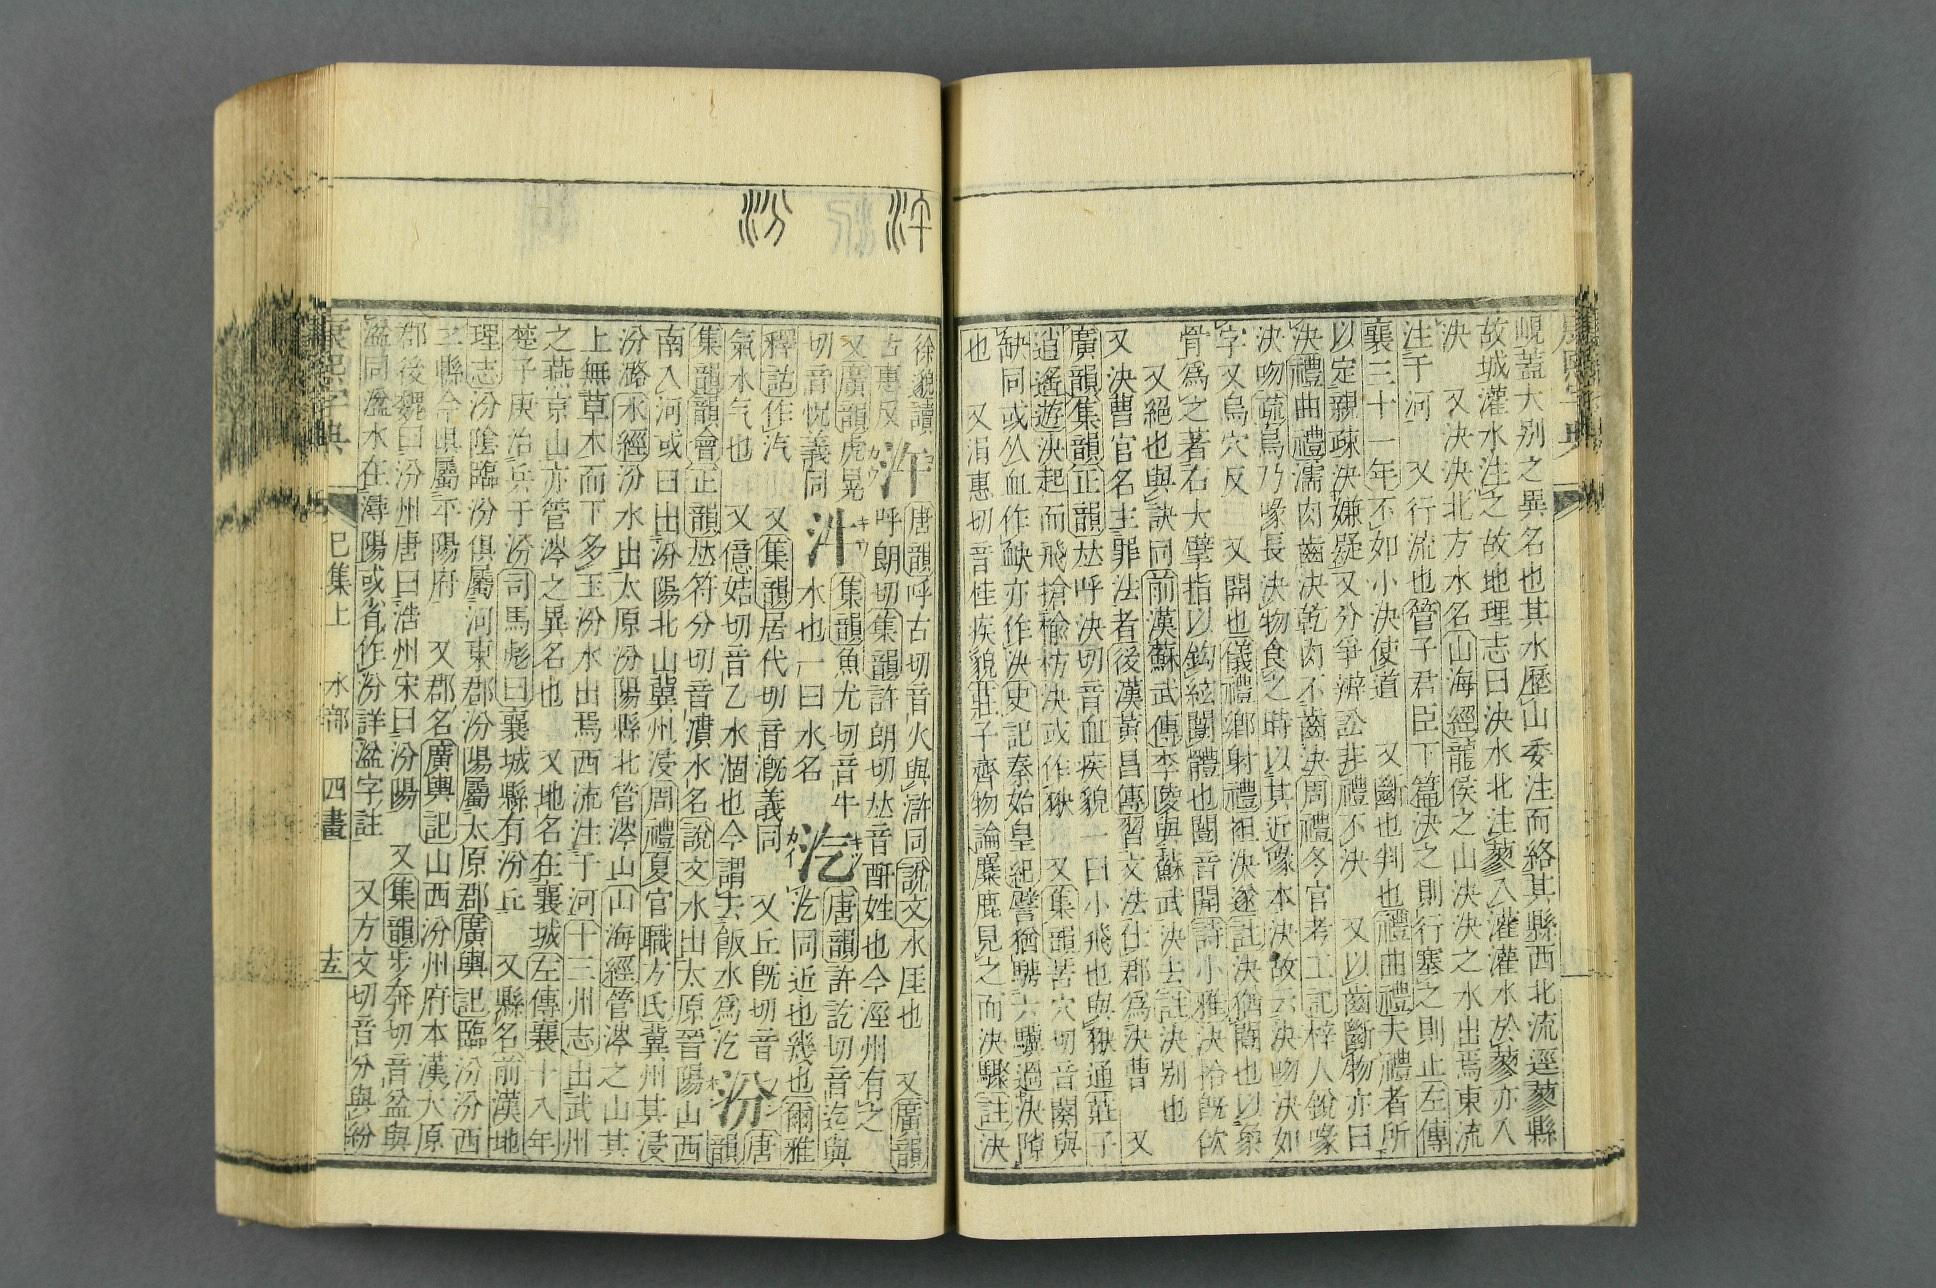 峴蓋大别之異名也其水歷山委注而絡其縣西北流逕蓼縣
故城灌水注之故地理志曰決水北注蓼入灌灌水於蓼亦入
決 又決決北方水名山海經龍侯之山決決之水出焉東流
注于河 又行流也管子君臣下篇決之則行塞之則止左傳
襄三十一年不如小決使道 又斷也判也禮曲禮夫禮者所
以定親疎決嫌疑又分爭辨訟非禮不決 又以齒斷物亦曰
決禮曲禮濡肉齒決乾肉不齒決周禮冬官考工記梓人銳喙
決吻疏鳥乃喙長決物食之時以其近喙本決故云決吻決如
字又烏穴反 又開也儀禮鄉射禮袒決遂註決猶闓也以象
骨爲之著右大擘指以鉤弦闓體也闓音開詩小雅決拾旣佽
又絕也與訣同前漢蘇武傳李陵與蘇武決去註決別也 又
又決曹官名主罪法者後漢黃昌傳習文法仕郡爲決曹 又
廣韻集韻正韻𠀤呼決切音血疾貌一曰小飛也與狘通莊子
逍遙遊決起而飛搶榆枋決或作狘 又集韻苦穴切音闋與
缺同或公血作缺亦作決史記秦始皇紀譬猶騁六驥過決隙
也 又涓惠切音桂疾貌莊子齊物論麋鹿見之而決驟註決
徐邈讀
古惠反
汻 唐韻呼古切音火與滸同說文水厓也 又廣韻
呼朗切集韻許朗切𠀤音酐姓也今涇州有之
又廣韻虎晃
切音怳義同
汼 集韻魚尤切音牛
水也一曰水名
汔 唐韻許訖切音迄與
汔同近也幾也爾雅
釋詁作汽 又集韻居代切音漑義同 又丘旣切音
氣水气也 又億姞切音乙水涸也今謂去飯水爲汔
汾 唐
韻
集韻韻會正韻𠀤符分切音濆水名說文水出太原晉陽山西
南入河或曰出汾陽北山冀州浸周禮夏官職方氏冀州其浸
汾潞水經汾水出太原汾陽縣北管涔山山海經管涔之山其
上無草木而下多玉汾水出焉西流注于河十三州志出武州
之燕京山亦管涔之異名也 又地名在襄城左傳襄十八年
楚子庚治兵于汾司馬彪曰襄城縣有汾丘 又縣名前漢地
理志汾陰臨汾俱屬河東郡汾陽屬太原郡廣輿記臨汾汾西
二縣今俱屬平陽府 又郡名廣輿記山西汾州府本漢大原
郡後魏曰汾州唐曰浩州宋曰汾陽 又集韻步奔切音盆與
湓同湓水在潯陽或省作汾詳湓字註 又方文切音分與紛
康熙字典 巳集上 水部 四畫 十五